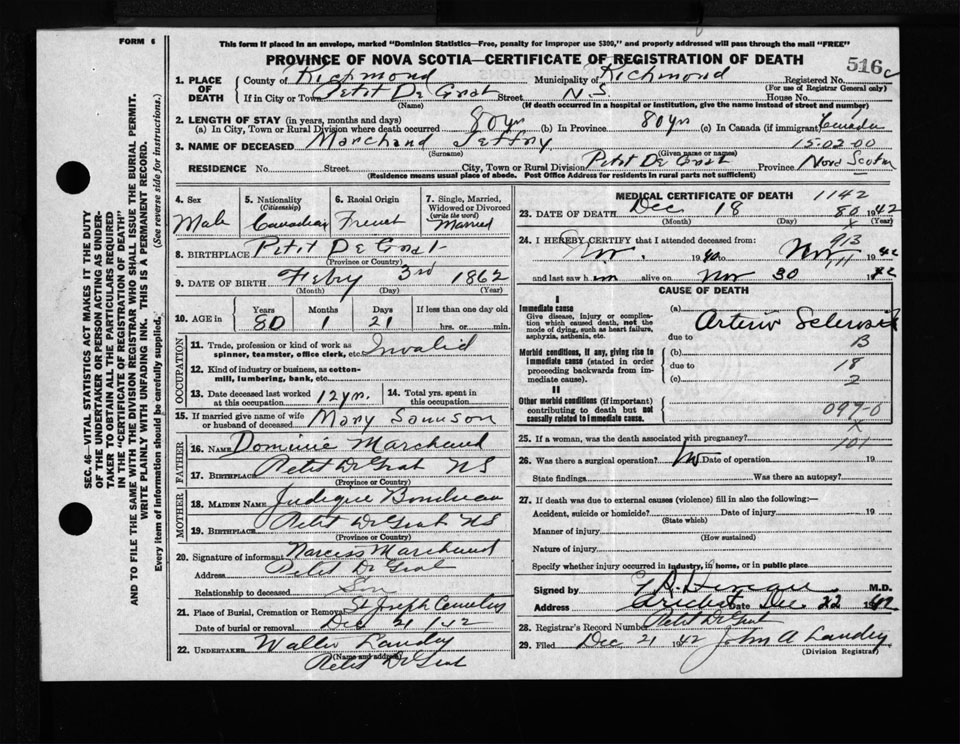 FORM 6
This form if placed in an envelope, marked "Dominion Statistics—Free, penalty for improper use $300," and properly addressed will pass through the mail "FREE"
PROVINCE OF NOVA SCOTIA—CERTIFICATE OF REGISTRATION OF DEATH
516
1. PLACE OF DEATH County of Richmond Municipality of Richmond Registered No.
(For use of Registrar General only)
If in City or Town Petit De Grat Street N.S. House No.
(Name) (If death occurred in a hospital or institution, give the name instead of street and number)
2. LENGTH OF STAY (in years, months and days)
(a) In City, Town or Rural Division where death occurred 80 yr (b) In Province 80 yr (c) In Canada (if immigrant) Canada
3. NAME OF DECEASED Marchand Jeffry 15-02-00
(Surname) (Given name or names)
RESIDENCE No. Street City, Town or Rural Division Petit De Grat Province Nova Scotia
(Residence means usual place of abode. Post Office Address for residents in rural parts not sufficient)
4. Sex Male
5. Nationality (Citizenship) Canadian
6. Racial Origin French
7. Single, Married, Widowed or Divorced (write the word) Married
8. BIRTHPLACE Petit De Grat
(Province or Country)
9. DATE OF BIRTH Febry 3rd 1862
(Month) (Day) (Year)
10. AGE in Years 80 Months 1 Days 21 If less than one day old
hrs. or min.
OCCUPATION
11. Trade, profession or kind of work as spinner, teamster, office clerk, etc. Invalid
12. Kind of industry or business, as cotton-mill, lumbering, bank, etc.
13. Date deceased last worked at this occupation 12 yr. 14. Total yrs. spent in this occupation
15. If married give name of wife or husband of deceased Mary Samson
FATHER
16. NAME Dominic Marchand
17. BIRTHPLACE Petit De Grat NS
(Province or Country)
MOTHER
18. MAIDEN NAME Judique
19. BIRTHPLACE Petit De Grat NS
(Province or Country)
20. Signature of informant Narcess Marchand
Address Petit De Grat
Relationship to deceased Son
21. Place of Burial, Cremation or Removal St Joseph Cemetery
Date of burial or removal Dec 21/42
22. UNDERTAKER Walter Landry
(Name and address)
Petit De Grat
MEDICAL CERTIFICATE OF DEATH 1142
23. DATE OF DEATH Dec 18 1942
80
(Month) (Day) (Year)
24. I HEREBY CERTIFY that I attended deceased from:
Nov. 1940 to Nov 1942
913
and last saw him alive on Nov 30 1942
CAUSE OF DEATH
I
Immediate cause
Give disease, injury or complication which caused death, not the mode of dying, such as heart failure, asphyxia, asthenia, etc.
(a) Arterio Sclerosis
due to
B
Morbid conditions, if any, giving rise to immediate cause (stated in order proceeding backwards from immediate cause).
(b)
due to 18
(c) 2
II
Other morbid conditions (if important) contributing to death but not causally related to immediate cause.
097-0
X
25. If a woman, was the death associated with pregnancy? 101
26. Was there a surgical operation? No Date of operation 19
State findings Was there an autopsy?
27. If death was due to external causes (violence) fill in also the following:—
Accident, suicide or homicide? Date of injury 19
(State which)
Manner of injury
(How sustained)
Nature of injury
Specify whether injury occurred in industry, in home, or in public place
Signed by M.D.
Address Arichat Date Dec 22 1942
28. Registrar's Record Number Petit De Grat
29. Filed Dec 21 1942 John A Landry
(Division Registrar)
SEC. 46—VITAL STATISTICS ACT MAKES IT THE DUTY
OF THE UNDERTAKER OR PERSON ACTING AS UNDER-
TAKER TO OBTAIN ALL THE PARTICULARS REQUIRED
IN THE "CERTIFICATE OF REGISTRATION OF DEATH"
AND TO FILE THE SAME WITH THE DIVISION REGISTRAR WHO SHALL ISSUE THE BURIAL PERMIT.
WRITE PLAINLY WITH UNFADING INK. THIS IS A PERMANENT RECORD.
Every item of information should be carefully supplied. (See reverse side for instructions.)